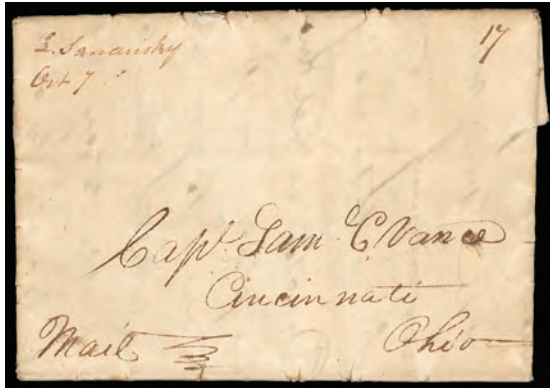 L. Sandusky
Oct 7
17
Capt Sam C Vance
Cincinnati
Ohio
Mail